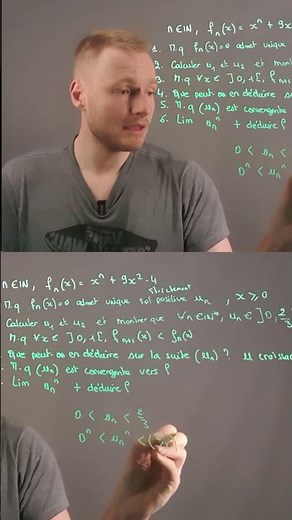 n ∈ IN, fₙ(x) = xⁿ + 9x
1. M.q fₙ(x)=0 admet unique
2. Calculer u₁ et u₂ et montrer
3. M.q ∀x ∈ ]0,1[, fₙ₊₁(x)
4. Que peut-on en déduire s
5. M.q (uₙ) est convergente
6. Lim uₙⁿ + déduire ℓ
0 < uₙ <
0ⁿ < uₙⁿ
n ∈ IN, fₙ(x) = xⁿ + 9x² - 4
strictement
M.q fₙ(x)=0 admet unique sol positive uₙ , x ⩾ 0
Calculer u₁ et u₂ et montrer que ∀n ∈ IN*, uₙ ∈ ]0, 2/3
M.q ∀x ∈ ]0,1[, fₙ₊₁(x) < fₙ(x)
Que peut-on en déduire sur la suite (uₙ) ? u croissa
M.q (uₙ) est convergente vers ℓ
Lim uₙⁿ + déduire ℓ
0 < uₙ < 2/3
0ⁿ < uₙⁿ < (